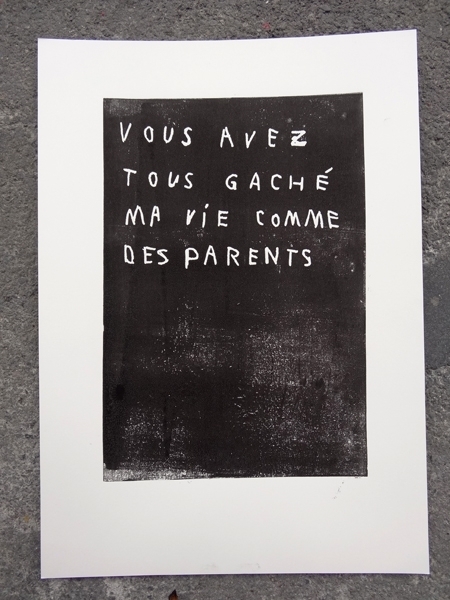 VOUS AVEZ
TOUS GACHÉ
MA VIE COMME
DES PARENTS